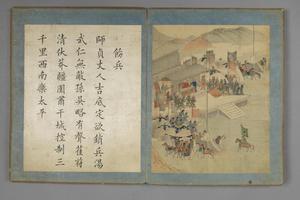 飭兵
師貞丈人吉底定欲銷兵湯
武仁無敵孫吳略有聲萑苻
清伏莽疆圉肅干城控制三
千里西南樂太平